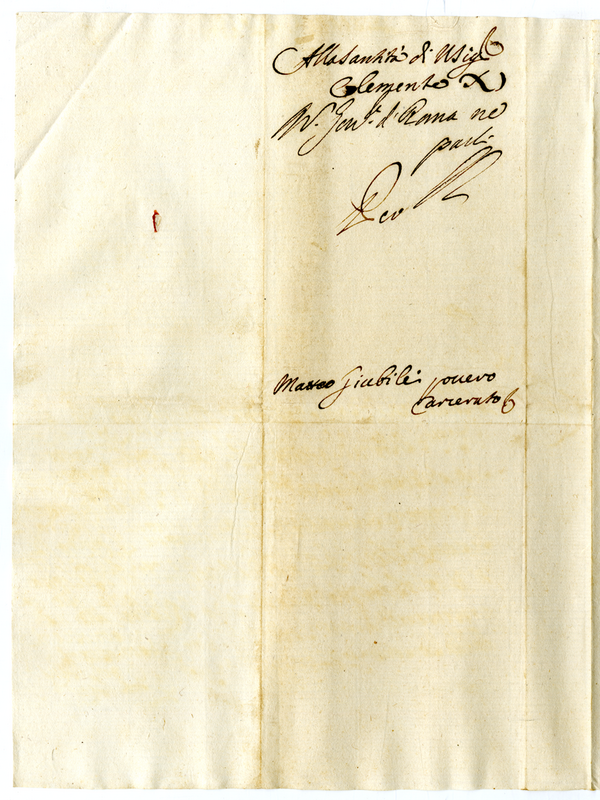 Alla Santità di N Sig.
Clemente X
M.r Gov.re di Roma ne
parli
Matteo Giubilei povero
Carcerato